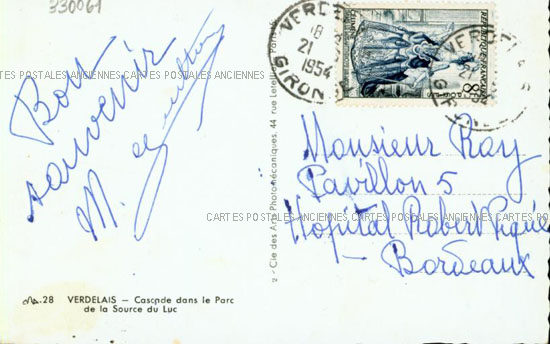 330061
Bon
souvenir
M.
VERDELAIS
18
21
1954
GIRONDE
POSTES
8F
CARTES POSTALES ANCIENNES CARTES POSTALES ANCIENNES
Monsieur Ray
Pavillon 5
Hopital Robert Piqué
Bordeaux
CARTES POSTALES ANCIENNES CARTES POSTALES ANCIENNES CARTES PO
2 - Cie des Arts Photomécaniques, 44 rue Letellier, Paris
28 VERDELAIS — Cascade dans le Parc
de la Source du Luc